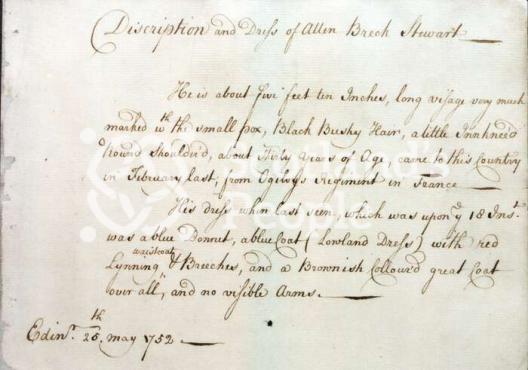 Discription and Dress of Allen Breck Stewart
He is about five feet ten Inches, long visage very much
marked wth the small pox, Black Bushy Hair, a little Innkneed
Round Shoulder'd, about thirty Years of Age, came to this Country
in February last, from Ogilvys Regiment in France
His dress when last seen, which was upon ye 18 Inst.
was a blue Bonnet, a blue Coat (Lowland Dress) with red
Lynning, waistcoat & Breeches, and a Brownish Collour'd great Coat
over all, and no visible Arms.
Edinr. 25th. may 1752
Scotland's
People